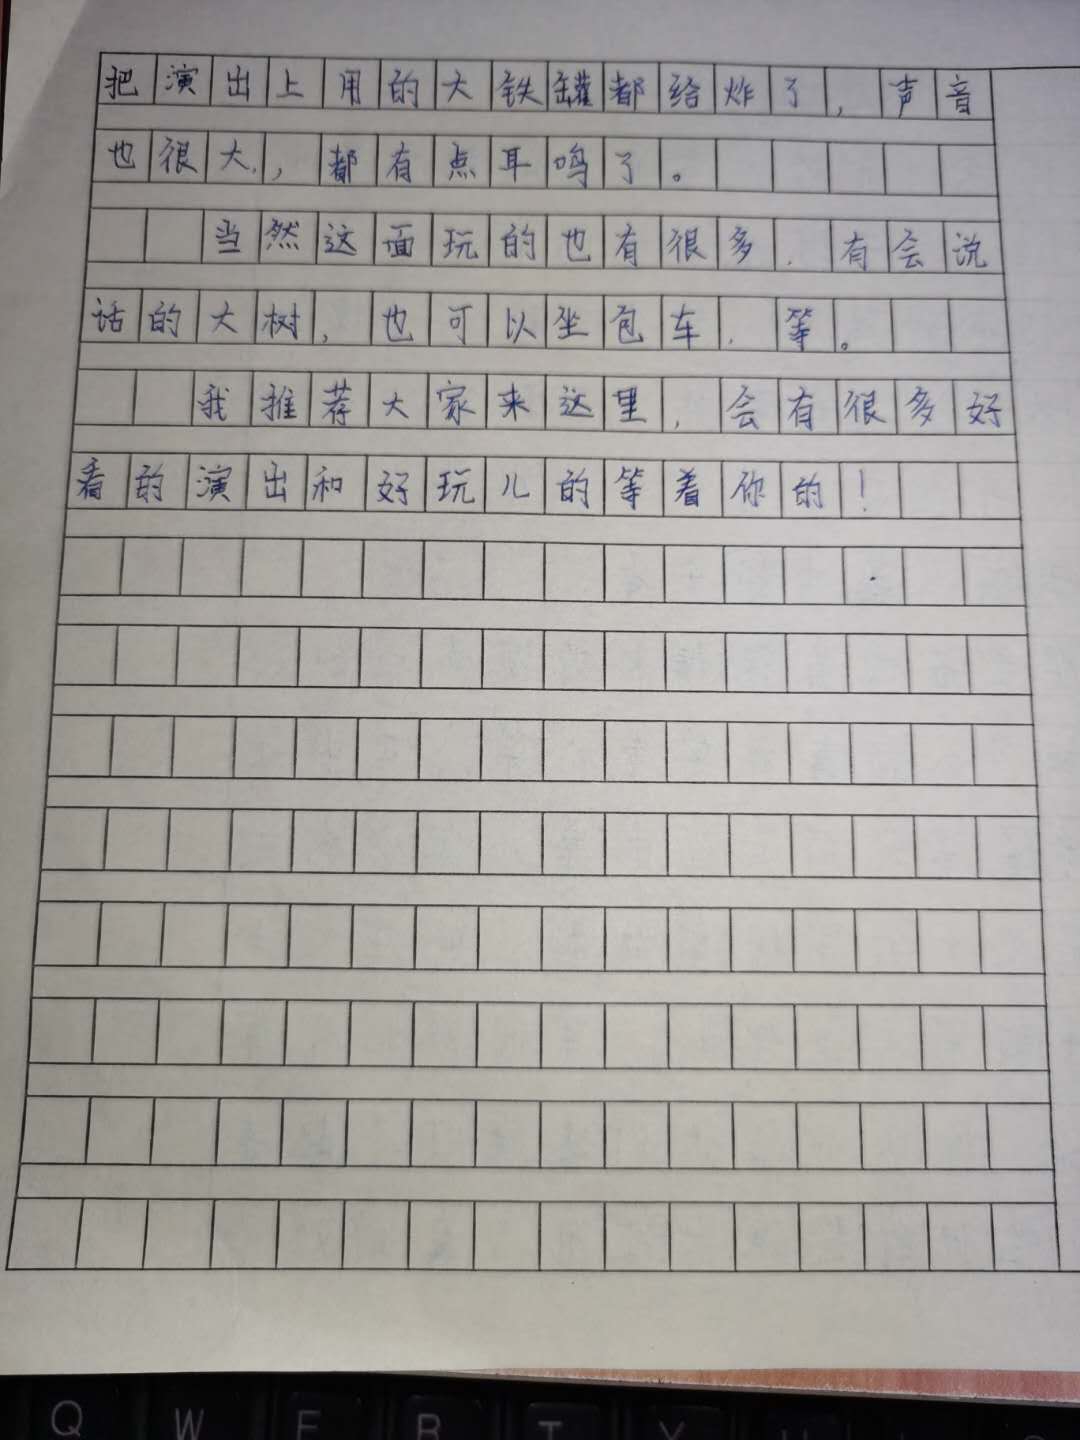 把演出上用的大铁罐都给炸了，声音
也很大，都有点耳鸣了。
当然这面玩的也有很多，有会说
话的大树，也可以坐包车，等。
我推荐大家来这里，会有很多好
看的演出和好玩儿的等着你的！
Q W E R T Y U